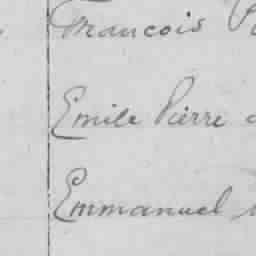 Francois
Emile Pierre
Emmanuel